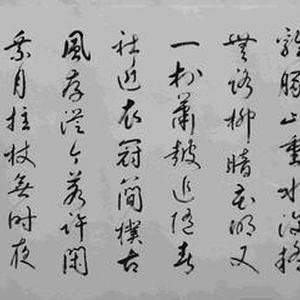 雞豚山重水複疑
無路柳暗花明又
一村簫鼓追隨春
社近衣冠簡樸古
風存從今若許閑
乘月拄杖無時夜